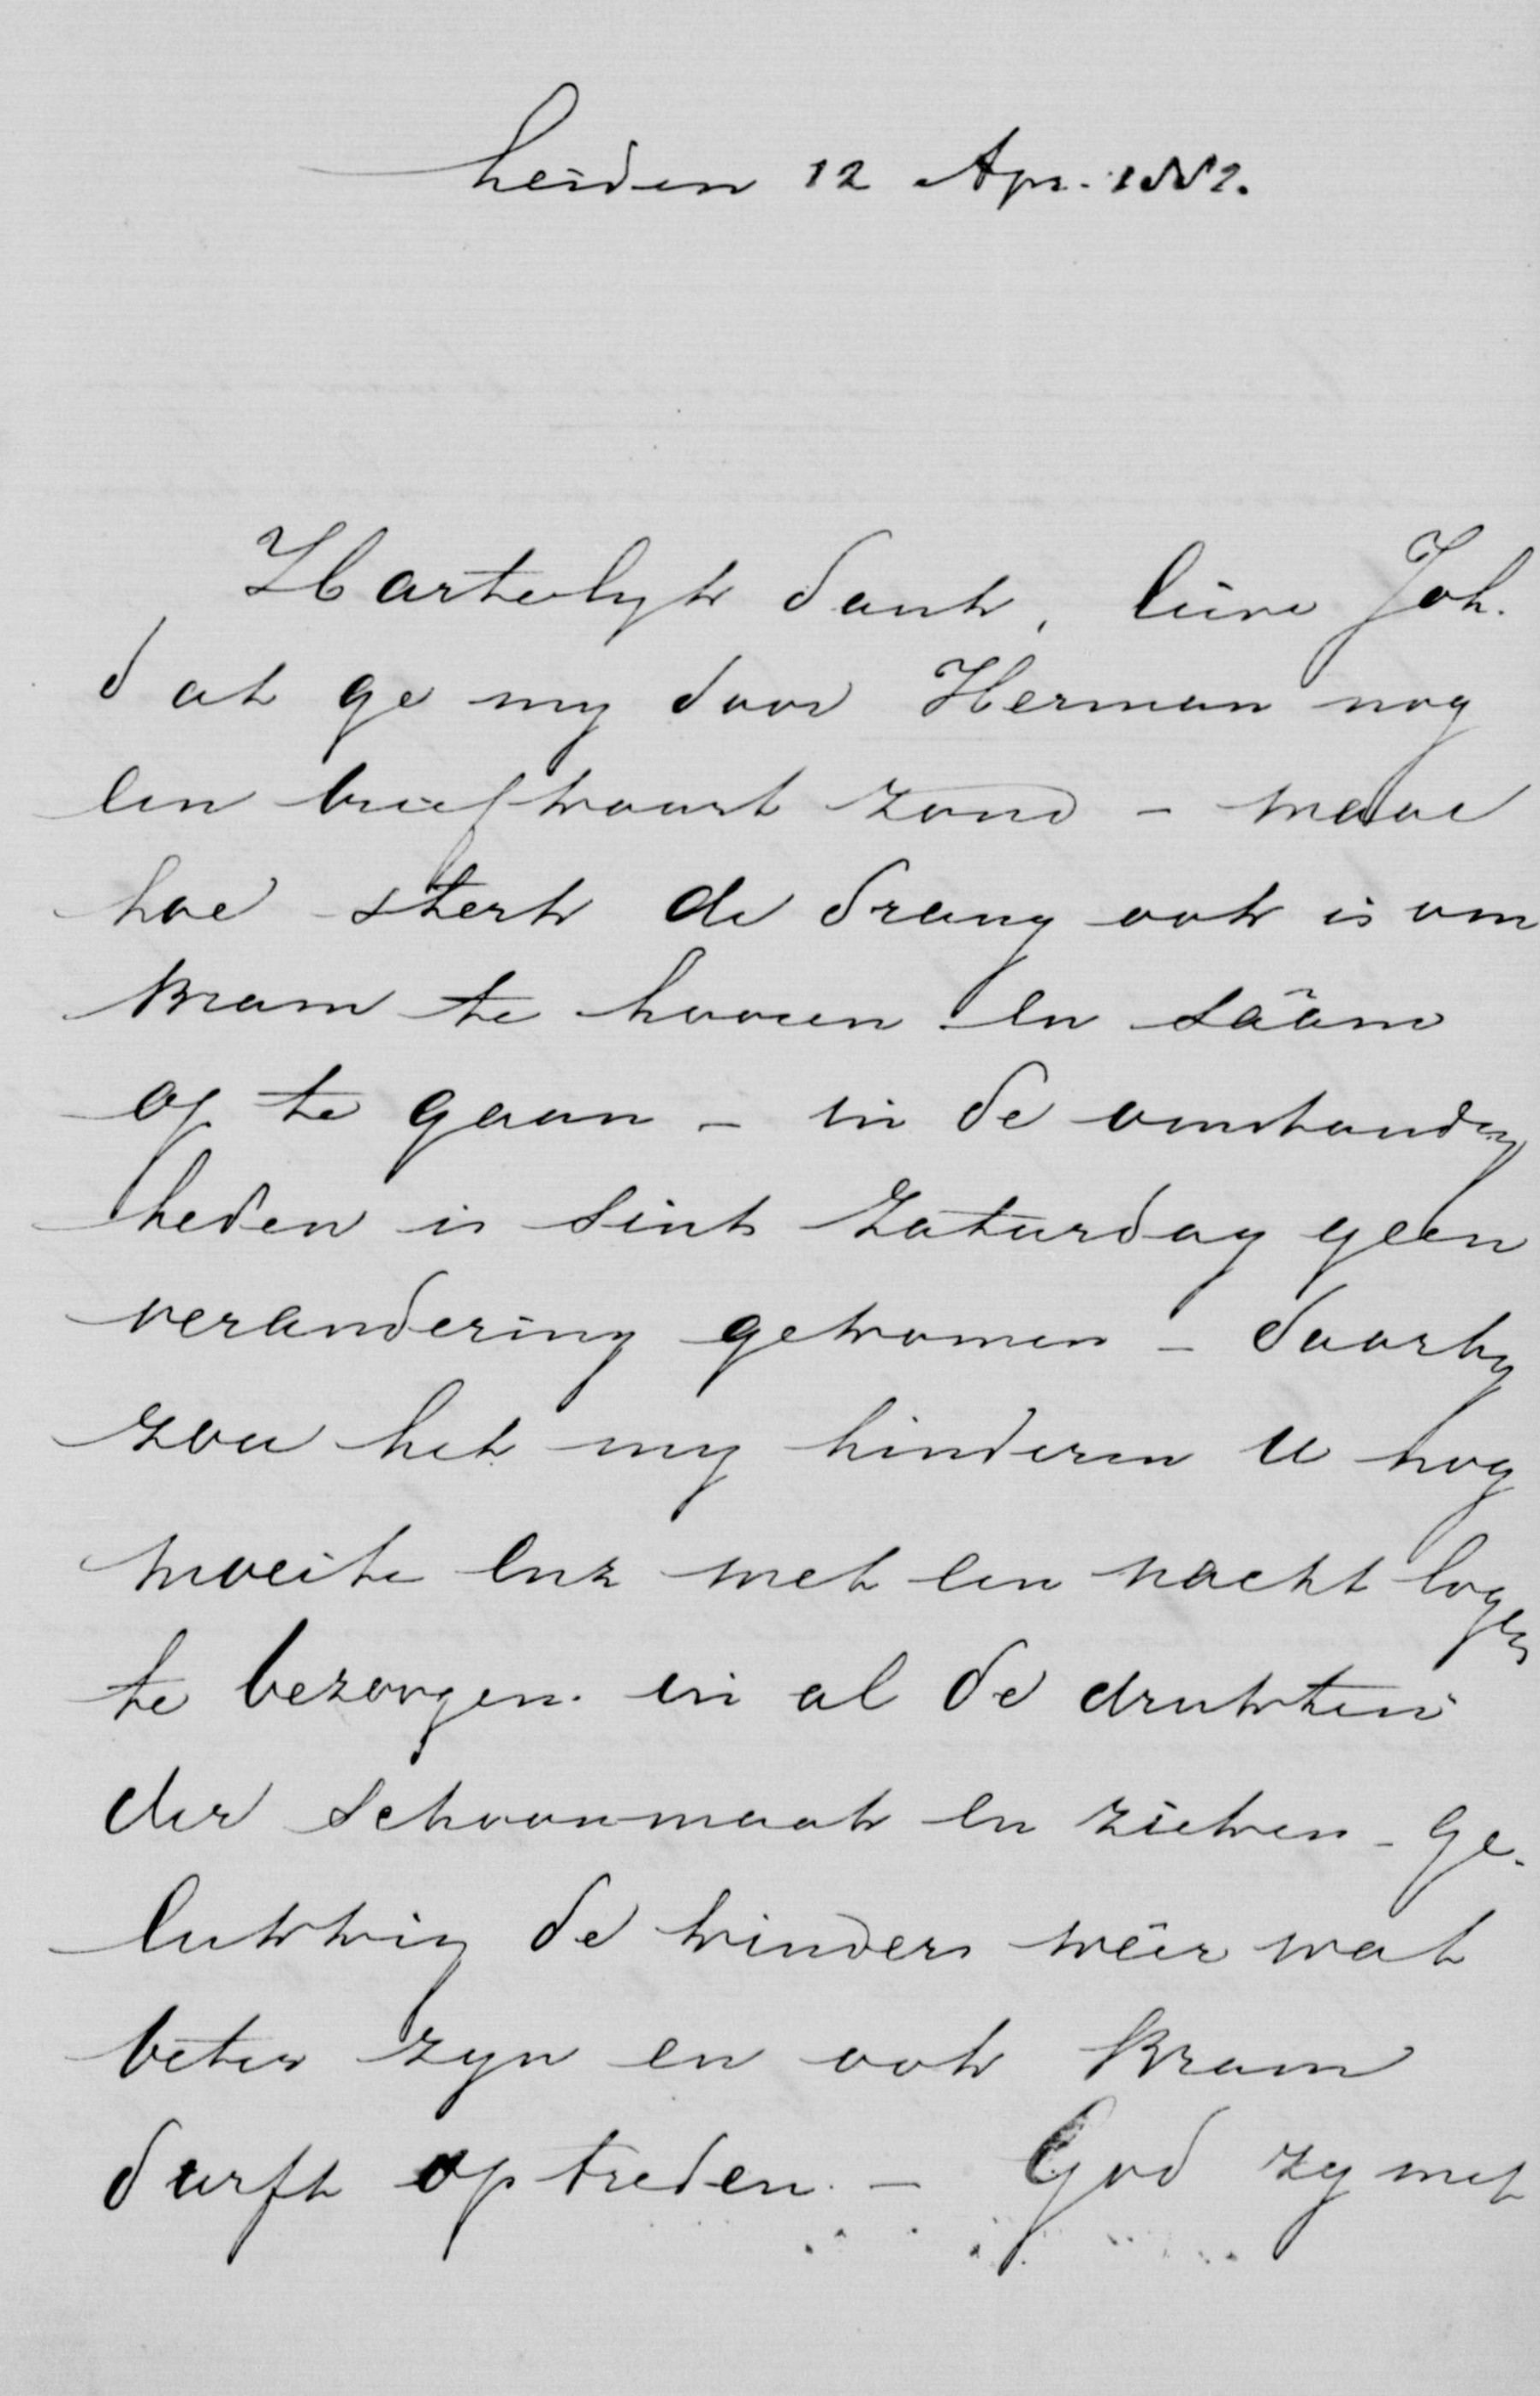 Leiden 12 Apr. 1882.
Hartelyk dank, lieve Joh.
dat ge my door Herman nog
een briefkaart zond - maar
hoe sterk de drang ook is om
Bram te hooren en sâam
op te gaan - in de omstandig
heden is sints Zaturdag geen
verandering gekomen - daarby
zou het my hinderen U nog
moeite enz met een nacht loges
te bezorgen in al de drukten
der schoonmaak en zieken - Ge-
lukkig de kinders wêer wat
beter zyn en ook Bram
durft optreden. - God zy met